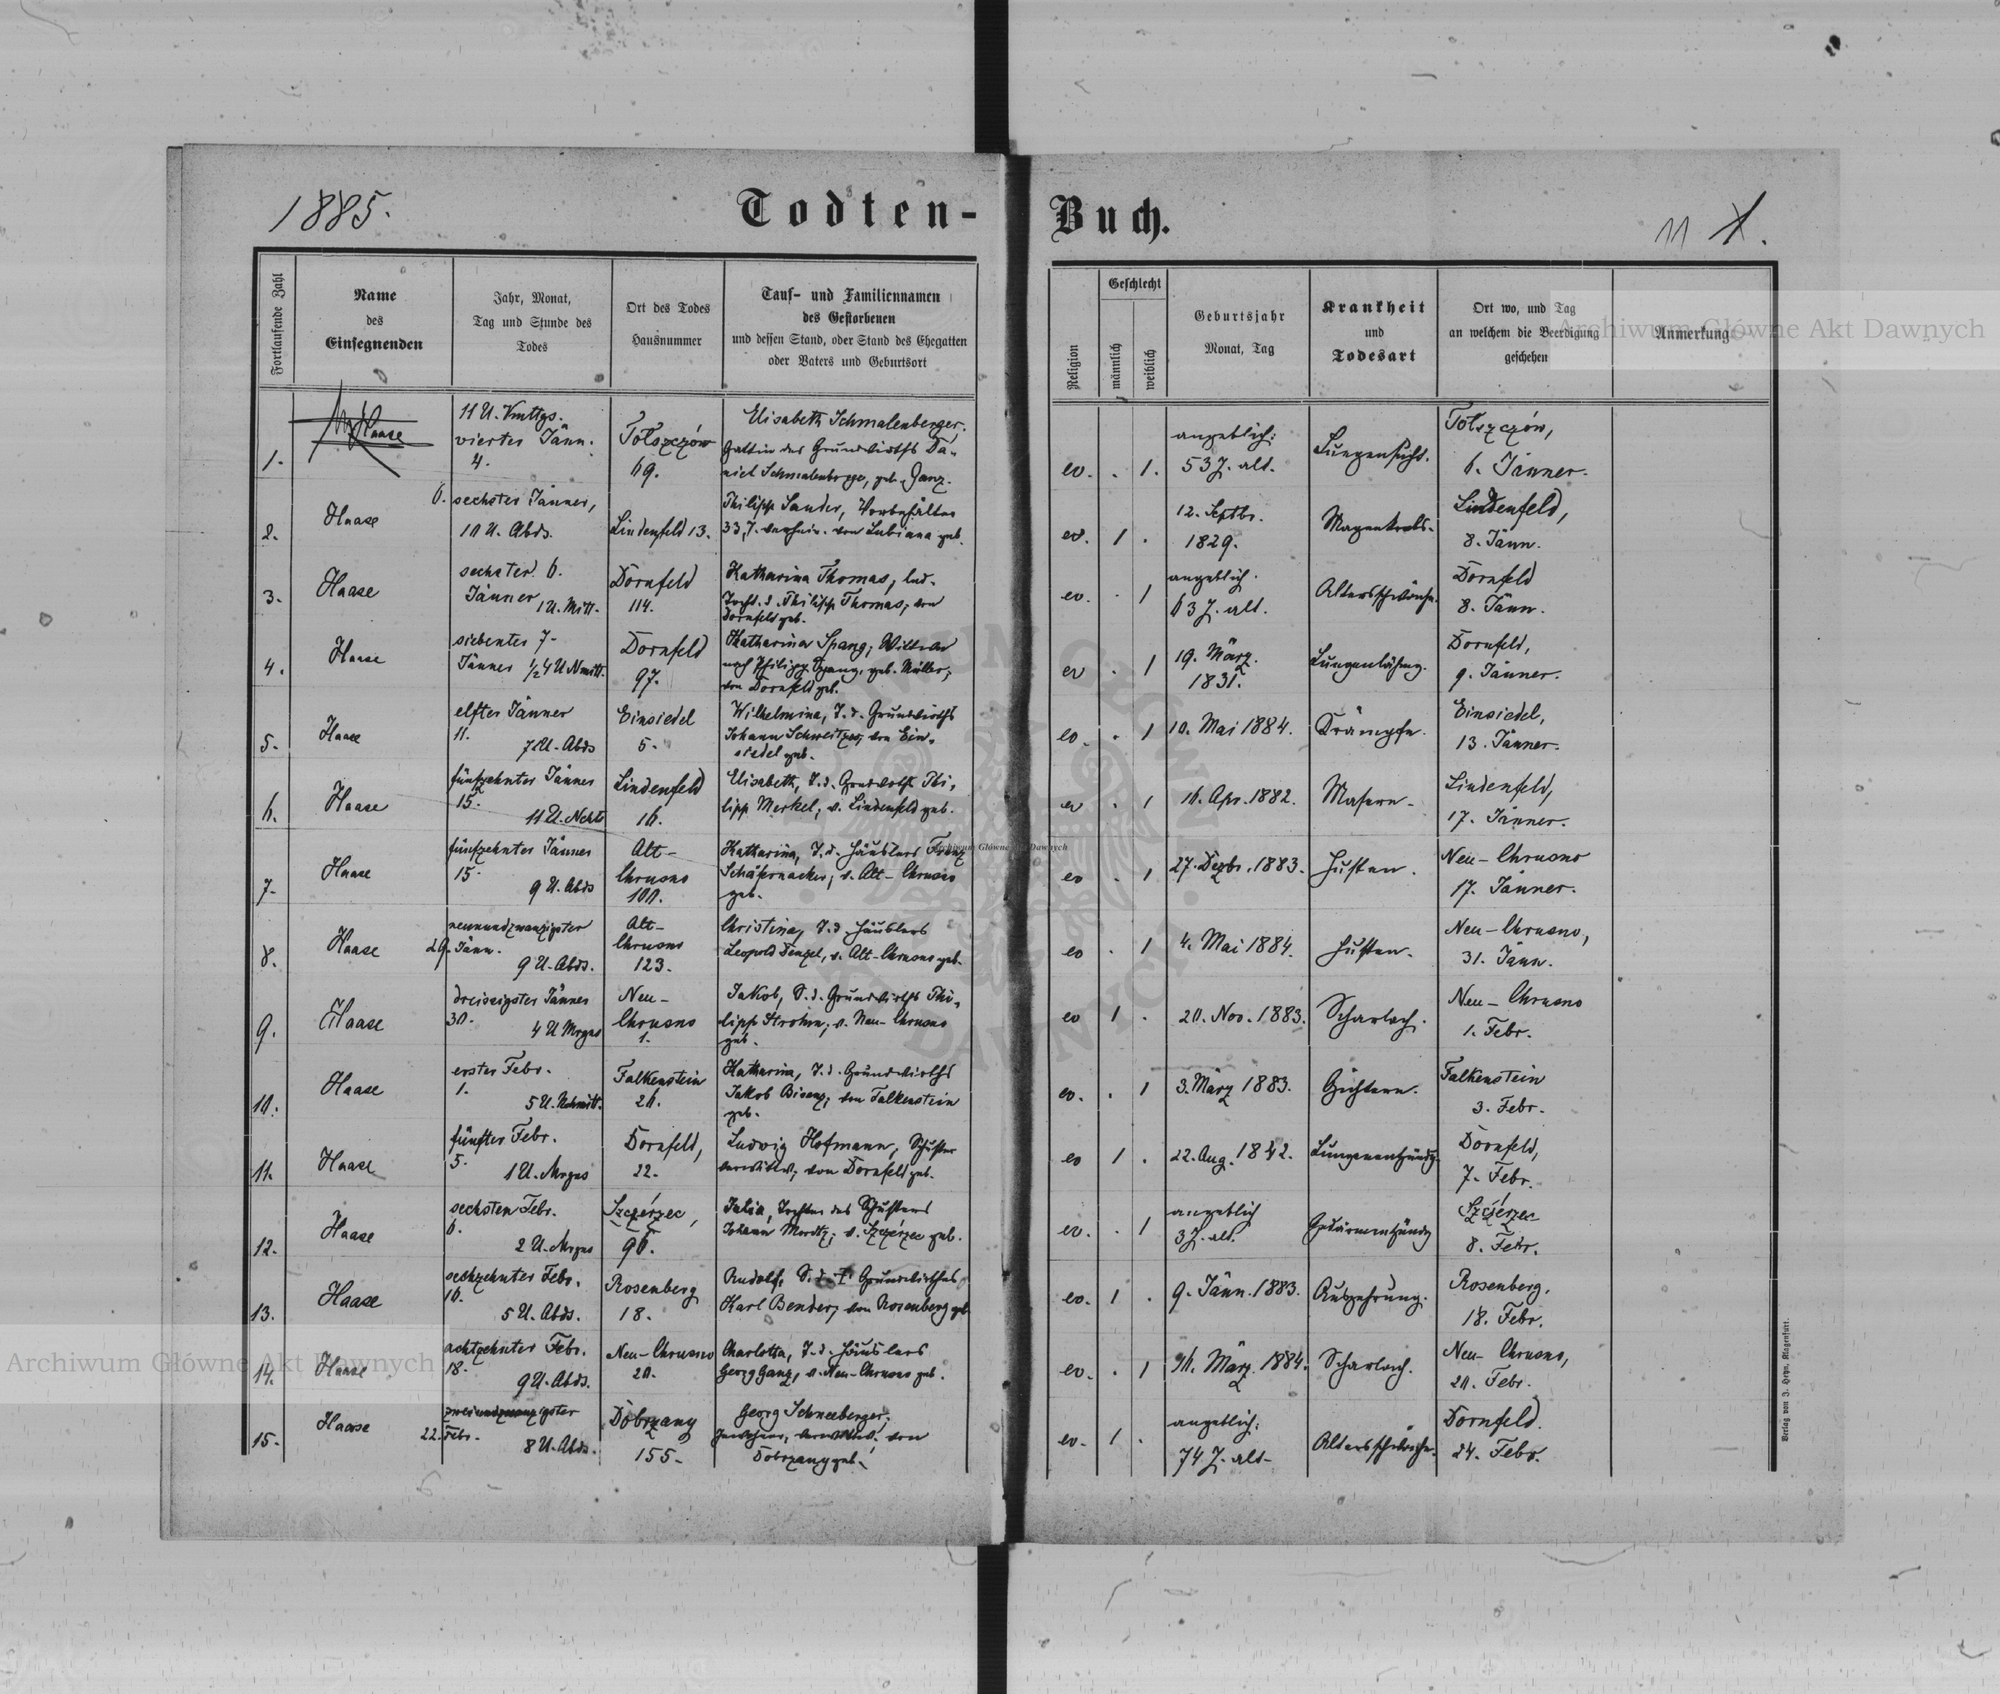 1885.
Todten-
Buch.
11 1.
Fortlaufende Zahl
Name
des
Einsegnenden
Jahr, Monat,
Tag und Stunde des
Todes
Ort des Todes
Hausnummer
Tauf- und Familiennamen
des Gestorbenen
und dessen Stand, oder Stand des Ehegatten
oder Vaters und Geburtsort
Religion
Geschlecht
männlich
weiblich
Geburtsjahr
Monat, Tag
Krankheit
und
Todesart
Ort wo, und Tag
an welchem die Beerdigung
geschehen
Anmerkung
1.
Haase
11 U. Vmttgs.
vierter Jänn.
4.
Tołszczów
69.
Elisabeth Schmalenberger.
Gattin des Grundwirths Da-
niel Schmalenberger, geb. Ganz.
ev. . 1.
angeblich:
53 J. alt.
Lungensucht.
Tołszczów,
6. Jänner.
2.
Haase
6. sechster Jänner,
10 U. Abds.
Lindenfeld 13.
Philipp Sander,
33, J. von Lubiana geb.
ev. 1 .
12. Septbr.
1829.
Magenkrebs.
Lindenfeld,
8. Jänn.
3.
Haase
sechster 6.
Jänner 1 U. Mitt.
Dornfeld
114.
Katharina Thomas, led.
Tocht. d. Philipp Thomas, von
Dornfeld geb.
ev. . 1
angeblich.
63 J. alt.
Altersschwäche.
Dornfeld
8. Jänn.
4.
Haase
siebenter 7.
Jänner ½4 U Nmitt.
Dornfeld
97.
Katharina Spang, Witwe
nach Philipp Spang, geb. Müller,
von Dornfeld geb.
ev . 1
19. März.
1831.
Lungenlähmg.
Dornfeld,
9. Jänner.
5.
Haase
elfter Jänner
11.
7 U. Abds
Einsiedel
5.
Wilhelmina, T. d. Grundwirths
Johann Schweitzer, von Ein-
siedel geb.
ev. . 1
10. Mai 1884.
Krämpfe.
Einsiedel,
13. Jänner.
6.
Haase
fünfzehnter Jänner
15.
11 U. Nchts
Lindenfeld
16.
Elisabeth, T. d. Grundwirths Phi-
lipp Merkel, v. Lindenfeld geb.
ev . 1
16. Apr. 1882.
Masern.
Lindenfeld,
17. Jänner.
7.
Haase
fünfzehnter Jänner
15.
9 U. Abds
Alt-
Chrusno
100.
Katharina, T. d. Häuslers Franz
Schäfernacker, v. Alt-Chrusno
geb.
ev . 1
27. Dezbr. 1883.
Husten.
Neu-Chrusno
17. Jänner.
8.
Haase
neunundzwanzigster
29. Jänn.
9 U. Abds.
Alt-
Chrusno
123.
Christina, T. d. Häuslers
Leopold Denzel, v. Alt-Chrusno geb.
ev . 1
4. Mai 1884.
Husten.
Neu-Chrusno,
31. Jänn.
9.
Haase
dreissigster Jänner
30.
4 U Mrgns
Neu-
Chrusno
1.
Jakob, S. d. Grundwirths Phi-
lipp Strohm, v. Neu-Chrusno
geb.
ev 1 .
20. Nov. 1883.
Scharlach.
Neu-Chrusno
1. Febr.
10.
Haase
erster Febr.
1.
5 U. Nchmitt.
Falkenstein
20.
Katharina, T. d. Grundwirths
Jakob Bisanz, von Falkenstein
geb.
ev. . 1
3. März 1883.
Falkenstein
3. Febr.
11.
Haase
fünfter Febr.
5.
1 U. Mrgns
Dornfeld,
22.
Ludwig Hofmann, Schuster
verwitwet, von Dornfeld geb.
ev 1 .
22. Aug. 1842.
Lungenentzündg.
Dornfeld,
7. Febr.
12.
Haase
sechsten Febr.
6.
2 U. Mrgns
Szczérzec,
96.
Julia, Tochter des Schusters
Johann Moritz, v. Szczérzec geb.
ev. . 1
angeblich
3 J. alt.
Gedärmentzündg
Szczérzec
8. Febr.
13.
Haase
sechzehnter Febr.
16.
5 U. Abds.
Rosenberg
18.
Rudolf, S. d. † Grundwirthes
Karl Bender, von Rosenberg geb
ev. 1 .
9. Jänn. 1883.
Auszehrung.
Rosenberg,
18. Febr.
14.
Haase
achtzehnter Febr.
18.
9 U. Abds.
Neu-Chrusno
20.
Charlotta, T. d. Häuslers
Georg Ganz, v. Neu-Chrusno geb.
ev. . 1
16. März. 1884.
Scharlach.
Neu-Chrusno,
20. Febr.
15.
Haase
zweiundzwanzigster
22. Febr.
8 U. Abds.
Dobrzany
155.
Georg Schneeberger,
Inwohner, verwitwet, von
Dobrzany geb.
ev. 1 .
angeblich:
74 J. alt.
Altersschwäche.
Dornfeld.
24. Febr.
Verlag von J. Heyn, Klagenfurt.
Archiwum Główne Akt Dawnych
Archiwum Główne Akt Dawnych
Archiwum Główne Akt Dawnych